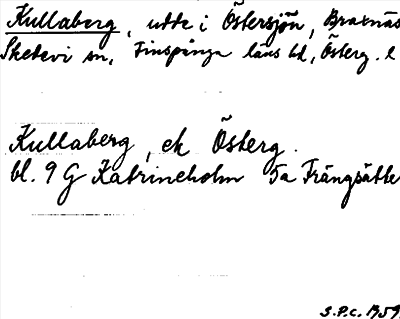 Kullaberg, udde i Östersjön, Braxnäs
Skedevi sn, Finspånga läns hd, Österg. l
Kullaberg, ek Österg.
bl. 9 G Katrineholm 5a Trängsätte
S.P.C. 1959